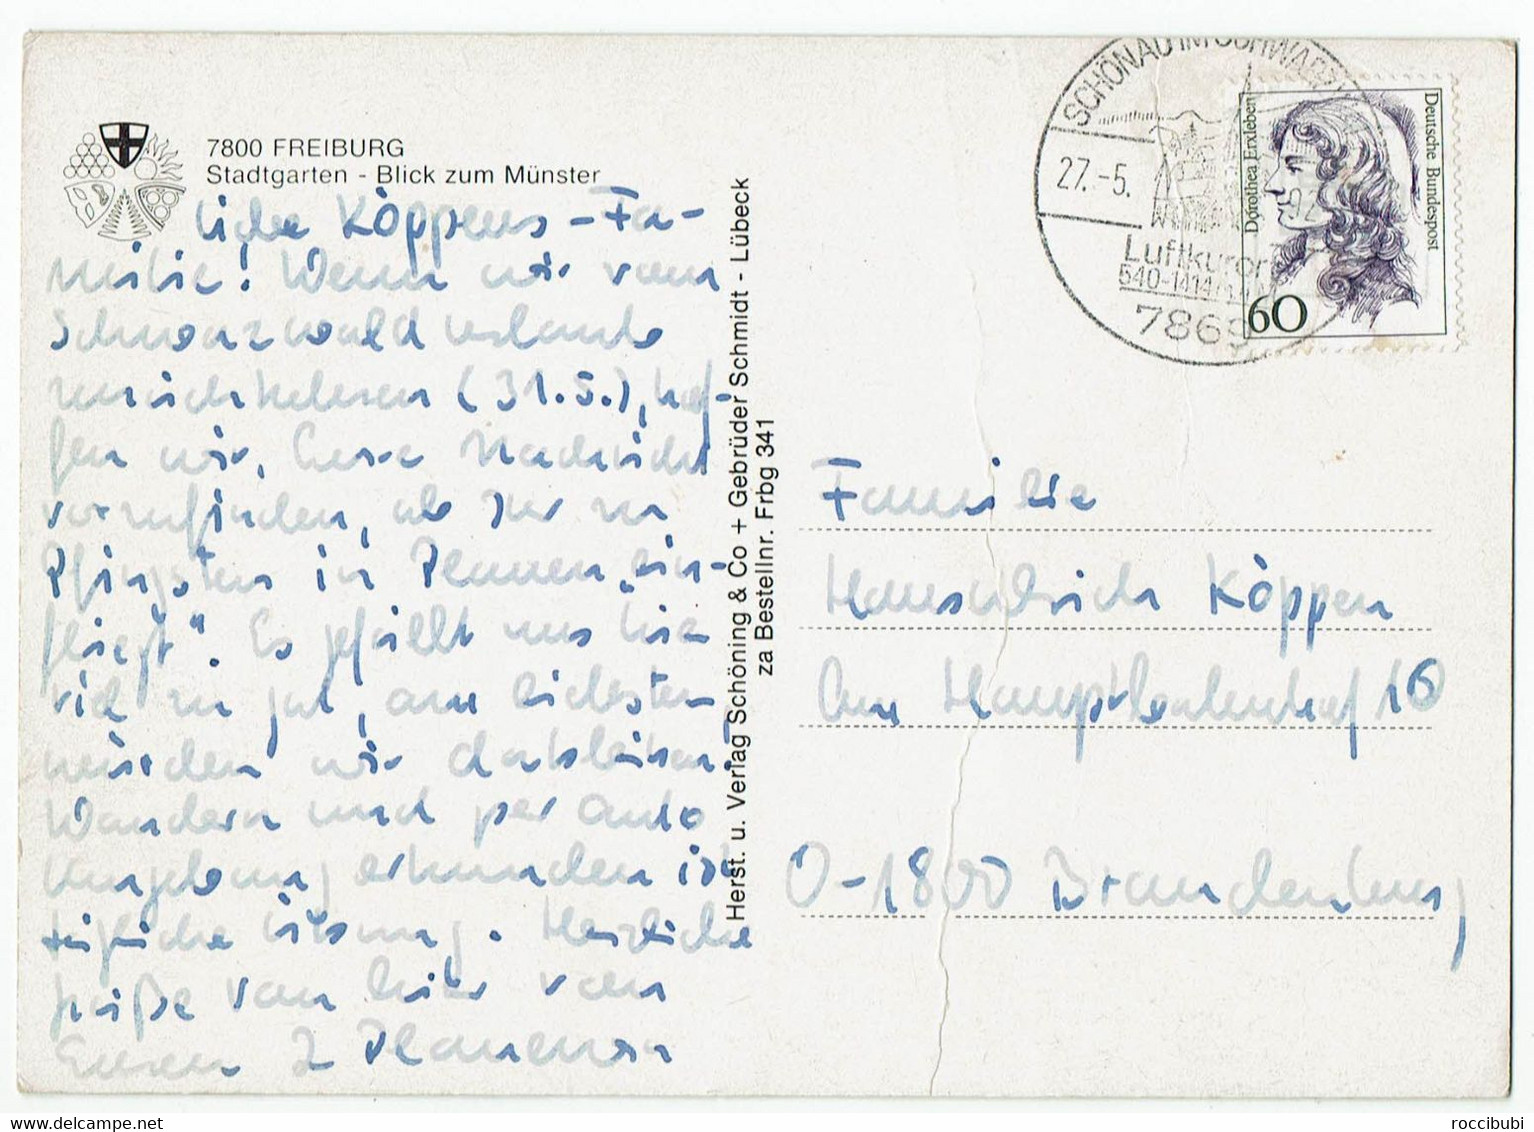 7800 FREIBURG
Stadtgarten - Blick zum Münster
Liebe Köppens-Fa-
milie! Wenn wir vom
Schwarzwaldurlaub
zurückkehren (31.5.), hof-
fen wir, Eure Nachricht
vorzufinden, ob Ihr zu
Pfingsten in Plauen „ein-
fliegt". Es gefällt uns hier
so gut, am liebsten
würden wir dableiben!
Wandern und per Auto
Umgebung erkunden ist
tägliche Übung. Herzliche
Grüße von hier von
Euren 2 Plauenern
Herst. u. Verlag Schöning & Co + Gebrüder Schmidt - Lübeck
za Bestellnr. Frbg 341
SCHÖNAU IM SCHWARZW
27.-5. 92
Luftkurort
540-1414
7869
Deutsche Bundespost
Dorothea Erxleben
60
Familie
Hansulrich Köppen
Am Hauptbahnhof 16
O-1800 Brandenburg
www.delcampe.net
roccibubi